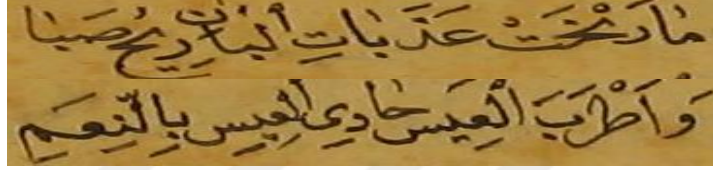 مَا رَنَّحَتْ عَذَبَاتِ الْبَانِ رِيحُ صَبَا
وَأَطْرَبَ الْعِيسَ حَادِي الْعِيسِ بِالنِّغَمِ